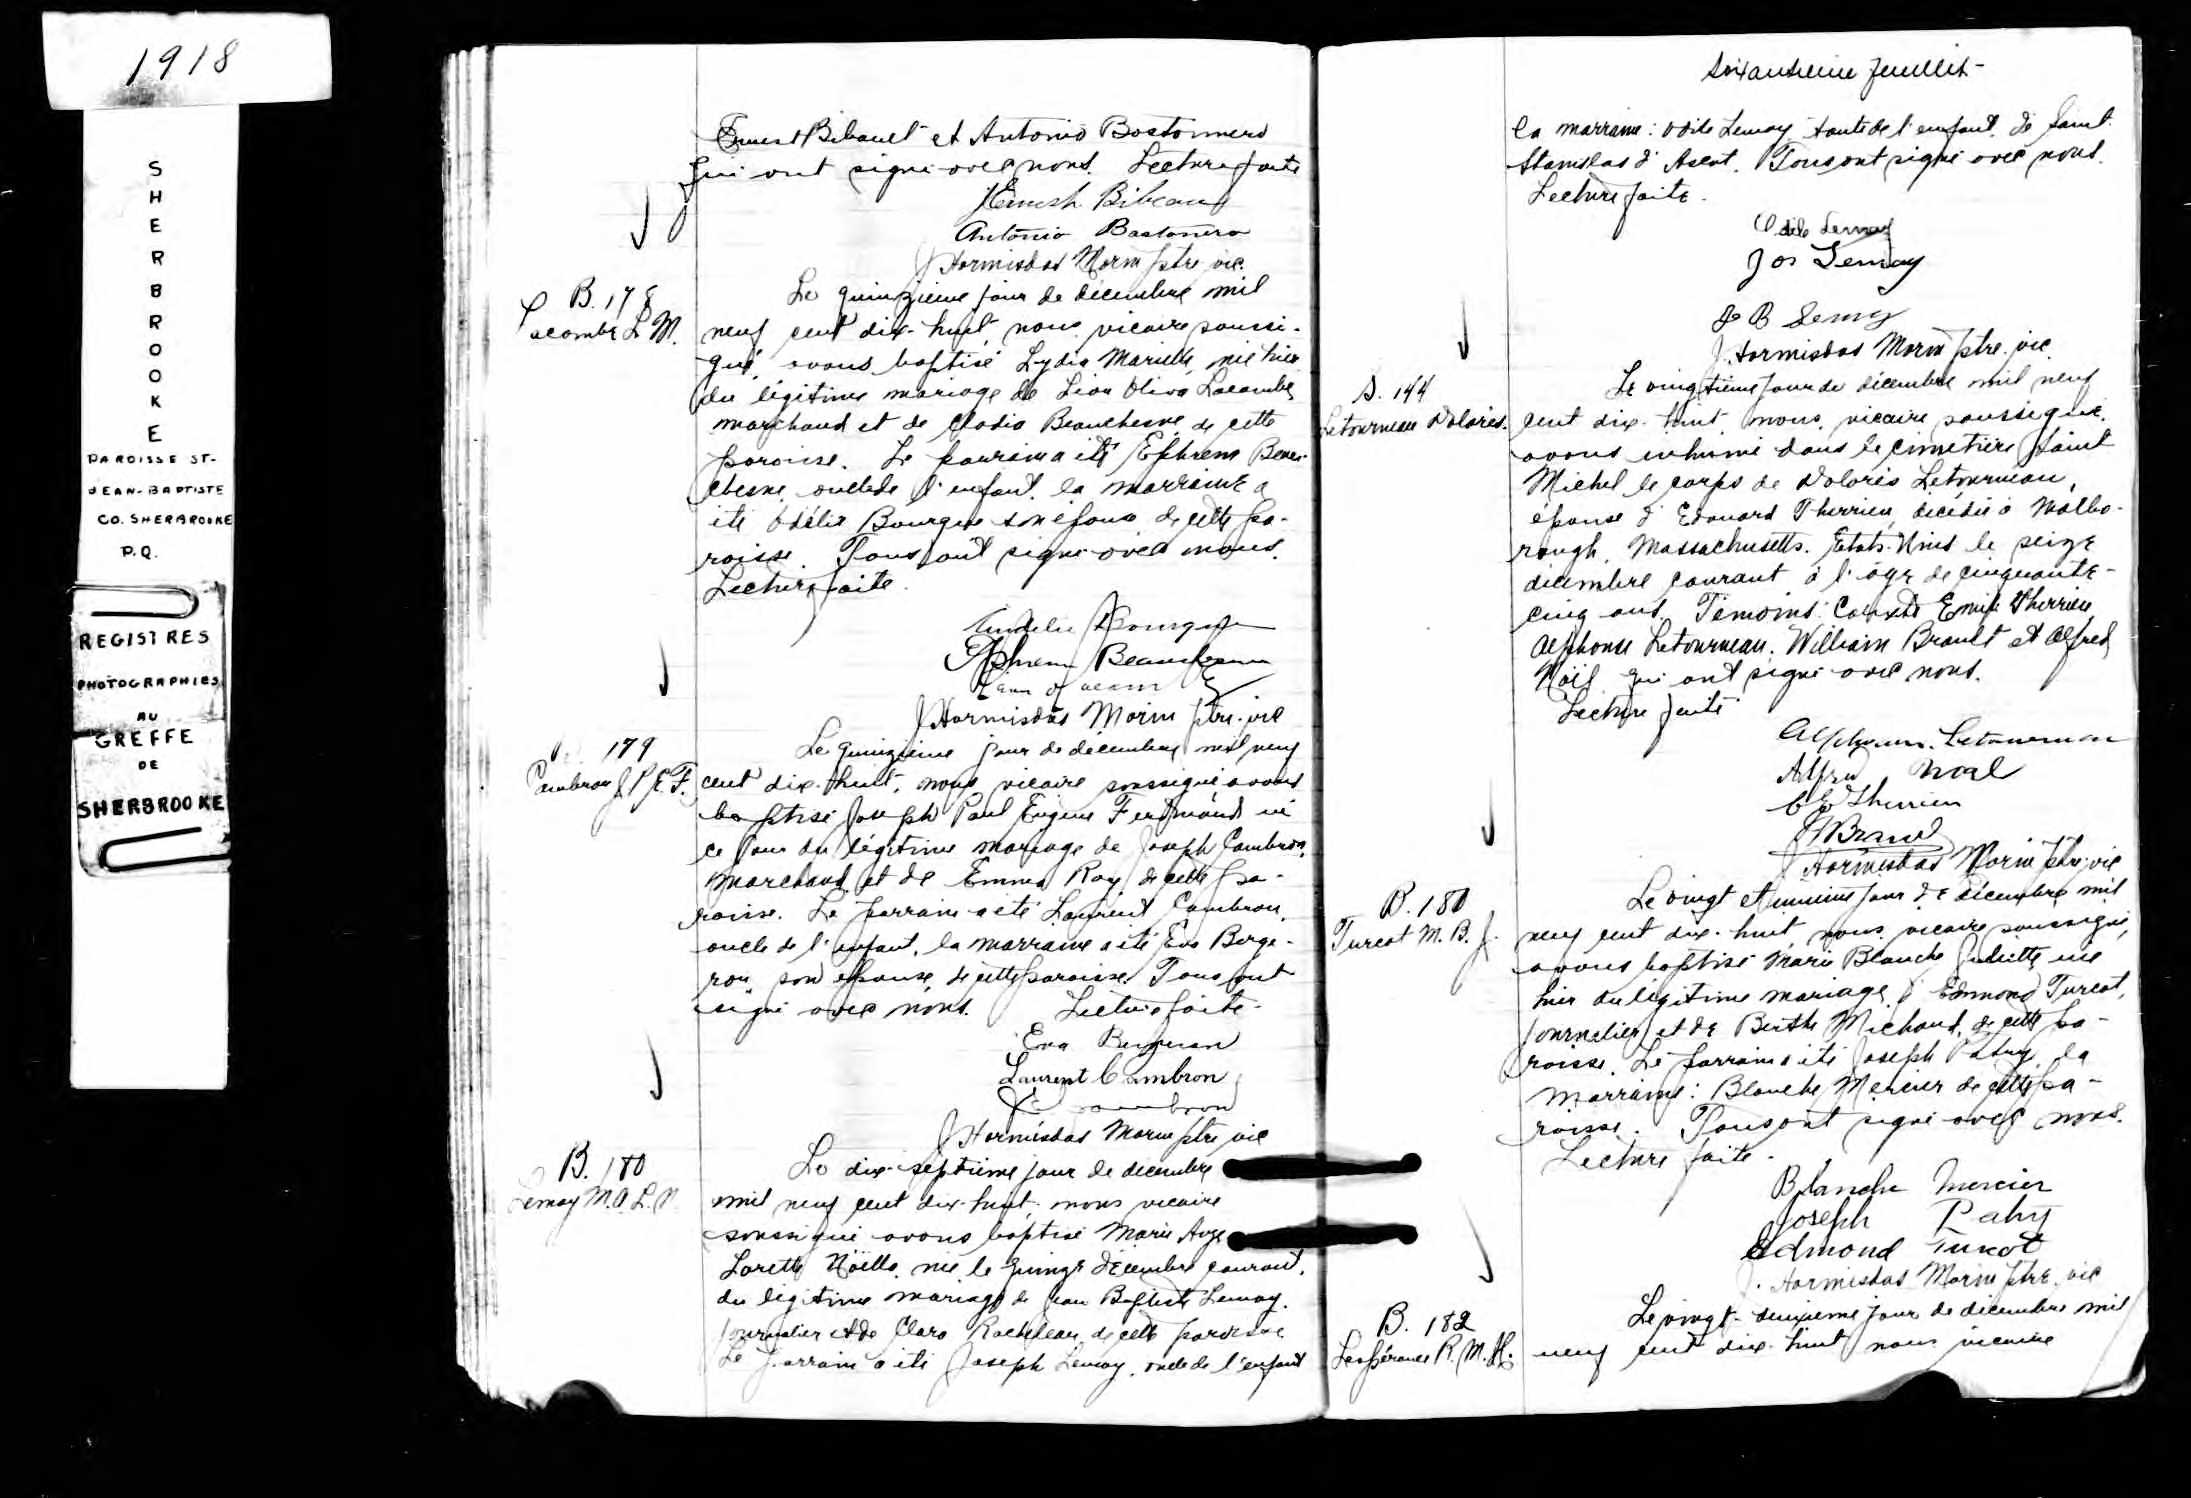 1918
S
H
E
R
B
R
O
O
K
E
PAROISSE ST-
JEAN-BAPTISTE
CO. SHERBROOKE
P.Q.
REGISTRES
PHOTOGRAPHIES
AU
GREFFE
DE
SHERBROOKE
Ernest Bibault et Antonio Bostonnero
qui ont signé avec nous. Lecture faite
Ernest Bibeau
Antonio Bastonero
J Hormisdas Morin ptre vic.
B. 178
Lacombe L M.
Le quinzième jour de décembre mil
neuf cent dix-huit, nous vicaire soussi-
gné, avons baptisé Lydia Marielle, née hier
du légitime mariage de Léon Oliva Lacombe
marchand et de Clodia Beauchesne de cette
paroisse. Le parrain a été Ephrem Beau-
chesne oncle de l'enfant, la marraine a
été Odélie Bourque son épouse de cette pa-
roisse. Tous ont signé avec nous.
Lecture faite.
Bourque
Ephrem Beauchesne
J Hormisdas Morin ptre. vic
179
Cambron J. P. E. F.
Le quinzième jour de décembre mil neuf
cent dix-huit, nous vicaire soussigné avons
baptisé Joseph Paul Eugène Ferdinand né
ce jour du légitime mariage de Joseph Cambron,
marchand et de Emma Roy de cette pa-
roisse. Le parrain a été Laurent Cambron,
oncle de l'enfant, la marraine a été Eva Berge-
ron, son épouse, de cette paroisse. Tous ont
signé avec nous. Lecture faite.
Eva Bergeron
Laurent Cambron
J Cambron
J Hormisdas Morin ptre vic
B. 180
Lemay M.A. L. N.
Le dix-septième jour de décembre
mil neuf cent dix-huit, nous vicaire
soussigné avons baptisé Marie Ange
Lorette Noëlla, née le quinze décembre courant,
du légitime mariage de Jean Baptiste Lemay,
journalier et de Clara Rocheleau de cette paroisse
Le parrain a été Joseph Lemay, oncle de l'enfant
Soixantième feuillet-
la marraine: Odile Lemay tante de l'enfant, de Saint
Stanislas d'Ascot. Tous ont signé avec nous.
Lecture faite.
Odile Lemay
Jos Lemay
J B Lemay
J. Hormisdas Morin ptre. vic.
S. 144
Letourneau Dolorès.
Le vingtième jour de décembre mil neuf
cent dix-huit, nous, vicaire soussigné,
avons inhumé dans le cimetière Saint
Michel le corps de Dolorès Letourneau,
épouse d'Edouard Therrien, décédée à Malbo-
rough, Massachusetts. Etats-Unis le seize
décembre courant à l'âge de cinquante-
cinq ans. Témoins: Calixte Emile Therrien
Alphonse Letourneau. William Brault et Alfred
Noël qui ont signé avec nous.
Lecture faite
Alphonse Letourneau
Alfred Noël
C E Therrien
J Hormisdas Morin ptre. vic
B. 181
Turcot M. B. J.
Le vingt et unième jour de décembre mil
neuf cent dix-huit, nous, vicaire soussigné,
avons baptisé Marie Blanche Juliette née
hier du légitime mariage d'Edmond Turcot,
journalier et de Berthe Michaud, de cette pa-
roisse. Le parrain a été Joseph Patry, la
marraine: Blanche Mercier de cette pa-
roisse. Tous ont signé avec nous.
Lecture faite.
Blanche Mercier
Joseph Patry
Edmond Turcot
J. Hormisdas Morin ptre vic
B. 182
Lespérance R. M. H.
Le vingt-deuxième jour de décembre mil
neuf cent dix-huit nous vicaire